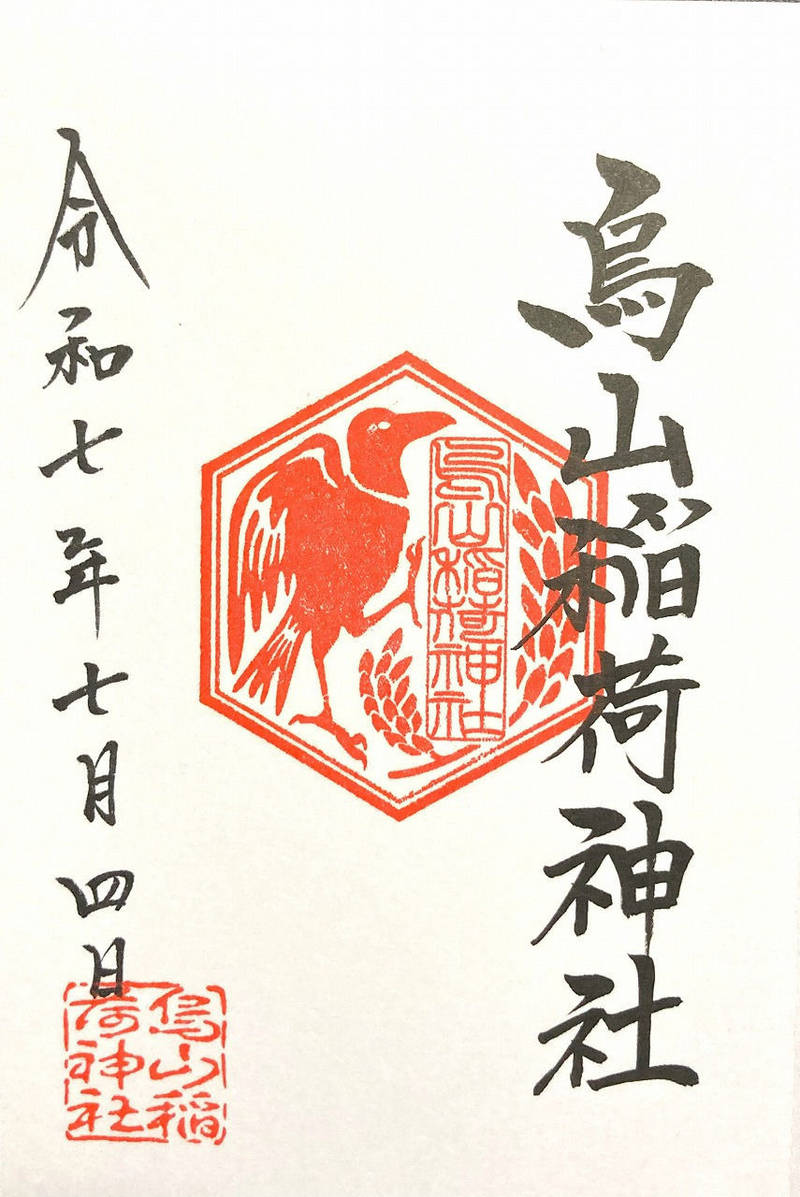 烏山稲荷神社
烏山稲荷神社
令和七年七月四日
烏山稲
荷神社